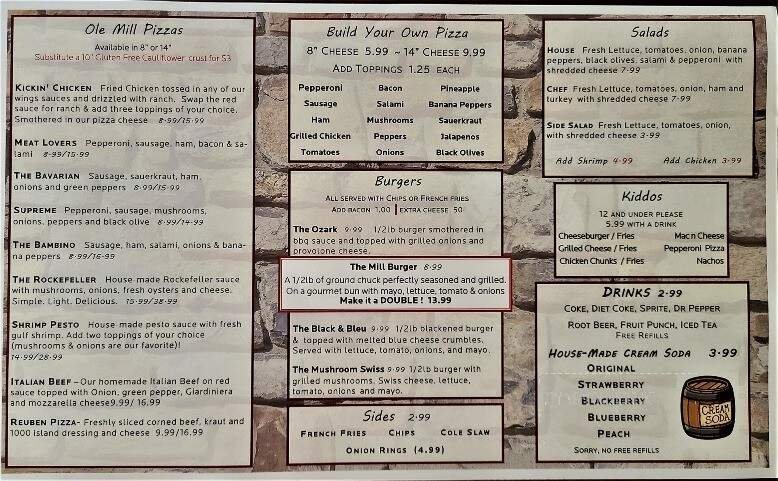 Ole Mill Pizzas
Available in 8" or 14"
Substitute a 10" Gluten Free Cauliflower crust for $3
KICKIN' CHICKEN Fried Chicken tossed in any of our
wings sauces and drizzled with ranch. Swap the red
sauce for ranch & add three toppings of your choice.
Smothered in our pizza cheese 8.99/15.99
MEAT LOVERS Pepperoni, sausage, ham, bacon & sa-
lami 8.99/15.99
THE BAVARIAN Sausage, sauerkraut, ham,
onions and green peppers 8.99/15.99
SUPREME Pepperoni, sausage, mushrooms,
onions, peppers and black olive 8.99/14.99
THE BAMBINO Sausage, ham, salami, onions & bana-
na peppers 8.99/16.99
THE ROCKEFELLER House made Rockefeller sauce
with mushrooms, onions, fresh oysters and cheese.
Simple. Light. Delicious. 15.99/38.99
SHRIMP PESTO House made pesto sauce with fresh
gulf shrimp. Add two toppings of your choice
(mushrooms & onions are our favorite)!
14.99/28.99
ITALIAN BEEF – Our homemade Italian Beef on red
sauce topped with Onion, green pepper, Giardiniera
and mozzarella cheese9.99/ 16.99
REUBEN PIZZA- Freshly sliced corned beef, kraut and
1000 island dressing and cheese 9.99/16.99
Build Your Own Pizza
8" CHEESE 5.99 ~ 14" CHEESE 9.99
ADD TOPPINGS 1.25 EACH
Pepperoni Bacon Pineapple
Sausage Salami Banana Peppers
Ham Mushrooms Sauerkraut
Grilled Chicken Peppers Jalapenos
Tomatoes Onions Black Olives
Burgers
ALL SERVED WITH CHIPS OR FRENCH FRIES
ADD BACON 1.00 | EXTRA CHEESE .50
The Ozark 9.99 1/2lb burger smothered in
bbq sauce and topped with grilled onions and
provolone cheese.
The Mill Burger 8.99
A 1/2lb of ground chuck perfectly seasoned and grilled.
On a gourmet bun with mayo, lettuce, tomato & onions
Make it a DOUBLE! 13.99
The Black & Bleu 9.99 1/2lb blackened burger
& topped with melted blue cheese crumbles.
Served with lettuce, tomato, onions, and mayo.
The Mushroom Swiss 9.99 1/2lb burger with
grilled mushrooms, Swiss cheese, lettuce,
tomato, onions and mayo.
Sides 2.99
FRENCH FRIES CHIPS COLE SLAW
ONION RINGS (4.99)
Salads
HOUSE Fresh Lettuce, tomatoes, onion, banana
peppers, black olives, salami & pepperoni with
shredded cheese 7.99
CHEF Fresh Lettuce, tomatoes, onion, ham and
turkey with shredded cheese 7.99
SIDE SALAD Fresh Lettuce, tomatoes, onion,
with shredded cheese 3.99
Add Shrimp 4.99 Add Chicken 3.99
Kiddos
12 AND UNDER PLEASE
5.99 WITH A DRINK
Cheeseburger / Fries Mac n Cheese
Grilled Cheese / Fries Pepperoni Pizza
Chicken Chunks / Fries Nachos
DRINKS 2.99
COKE, DIET COKE, SPRITE, DR PEPPER
ROOT BEER, FRUIT PUNCH, ICED TEA
FREE REFILLS
HOUSE-MADE CREAM SODA 3.99
ORIGINAL
STRAWBERRY
BLACKBERRY
BLUEBERRY
PEACH
SORRY, NO FREE REFILLS
CREAM
SODA